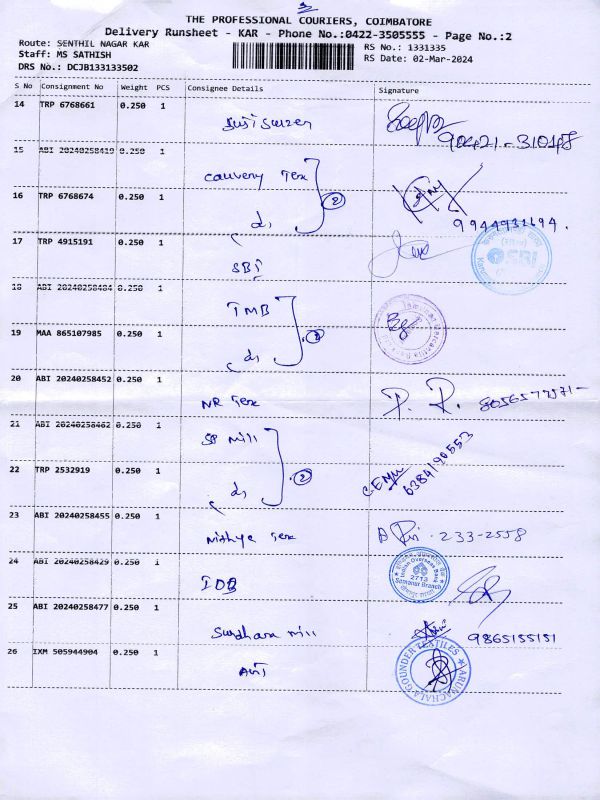 THE PROFESSIONAL COURIERS, COIMBATORE
Delivery Runsheet - KAR - Phone No.:0422-3505555 - Page No.:2
Route: SENTHIL NAGAR KAR
RS No.: 1331335
Staff: MS SATHISH
RS Date: 02-Mar-2024
DRS No.: DCJB133133502
S No Consignment No Weight PCS Consignee Details Signature
14 TRP 6768661 0.250 1
90421-31048
15 ABI 20240258419 0.250 1
Cauvery Tex
16 TRP 6768674 0.250 1
2
9944931694.
do
17 TRP 4915191 0.250 1
SBI
SBI
18 ABI 20240258484 0.250 1
TMB
19 MAA 865107985 0.250 1
do
20 ABI 20240258452 0.250 1
NR Tex
P. R.
21 ABI 20240258462 0.250 1
SP mill
6384190553
22 TRP 2532919 0.250 1
2
do
23 ABI 20240258455 0.250 1
Nithya Tex
233-2558
24 ABI 20240258429 0.250 1
IOB
Indian Overseas Bank
2713
Semanur Branch
25 ABI 20240258477 0.250 1
mill
9865155151
26 IXM 505944904 0.250 1
ARUNACHALA GOUNDER TEXTILES